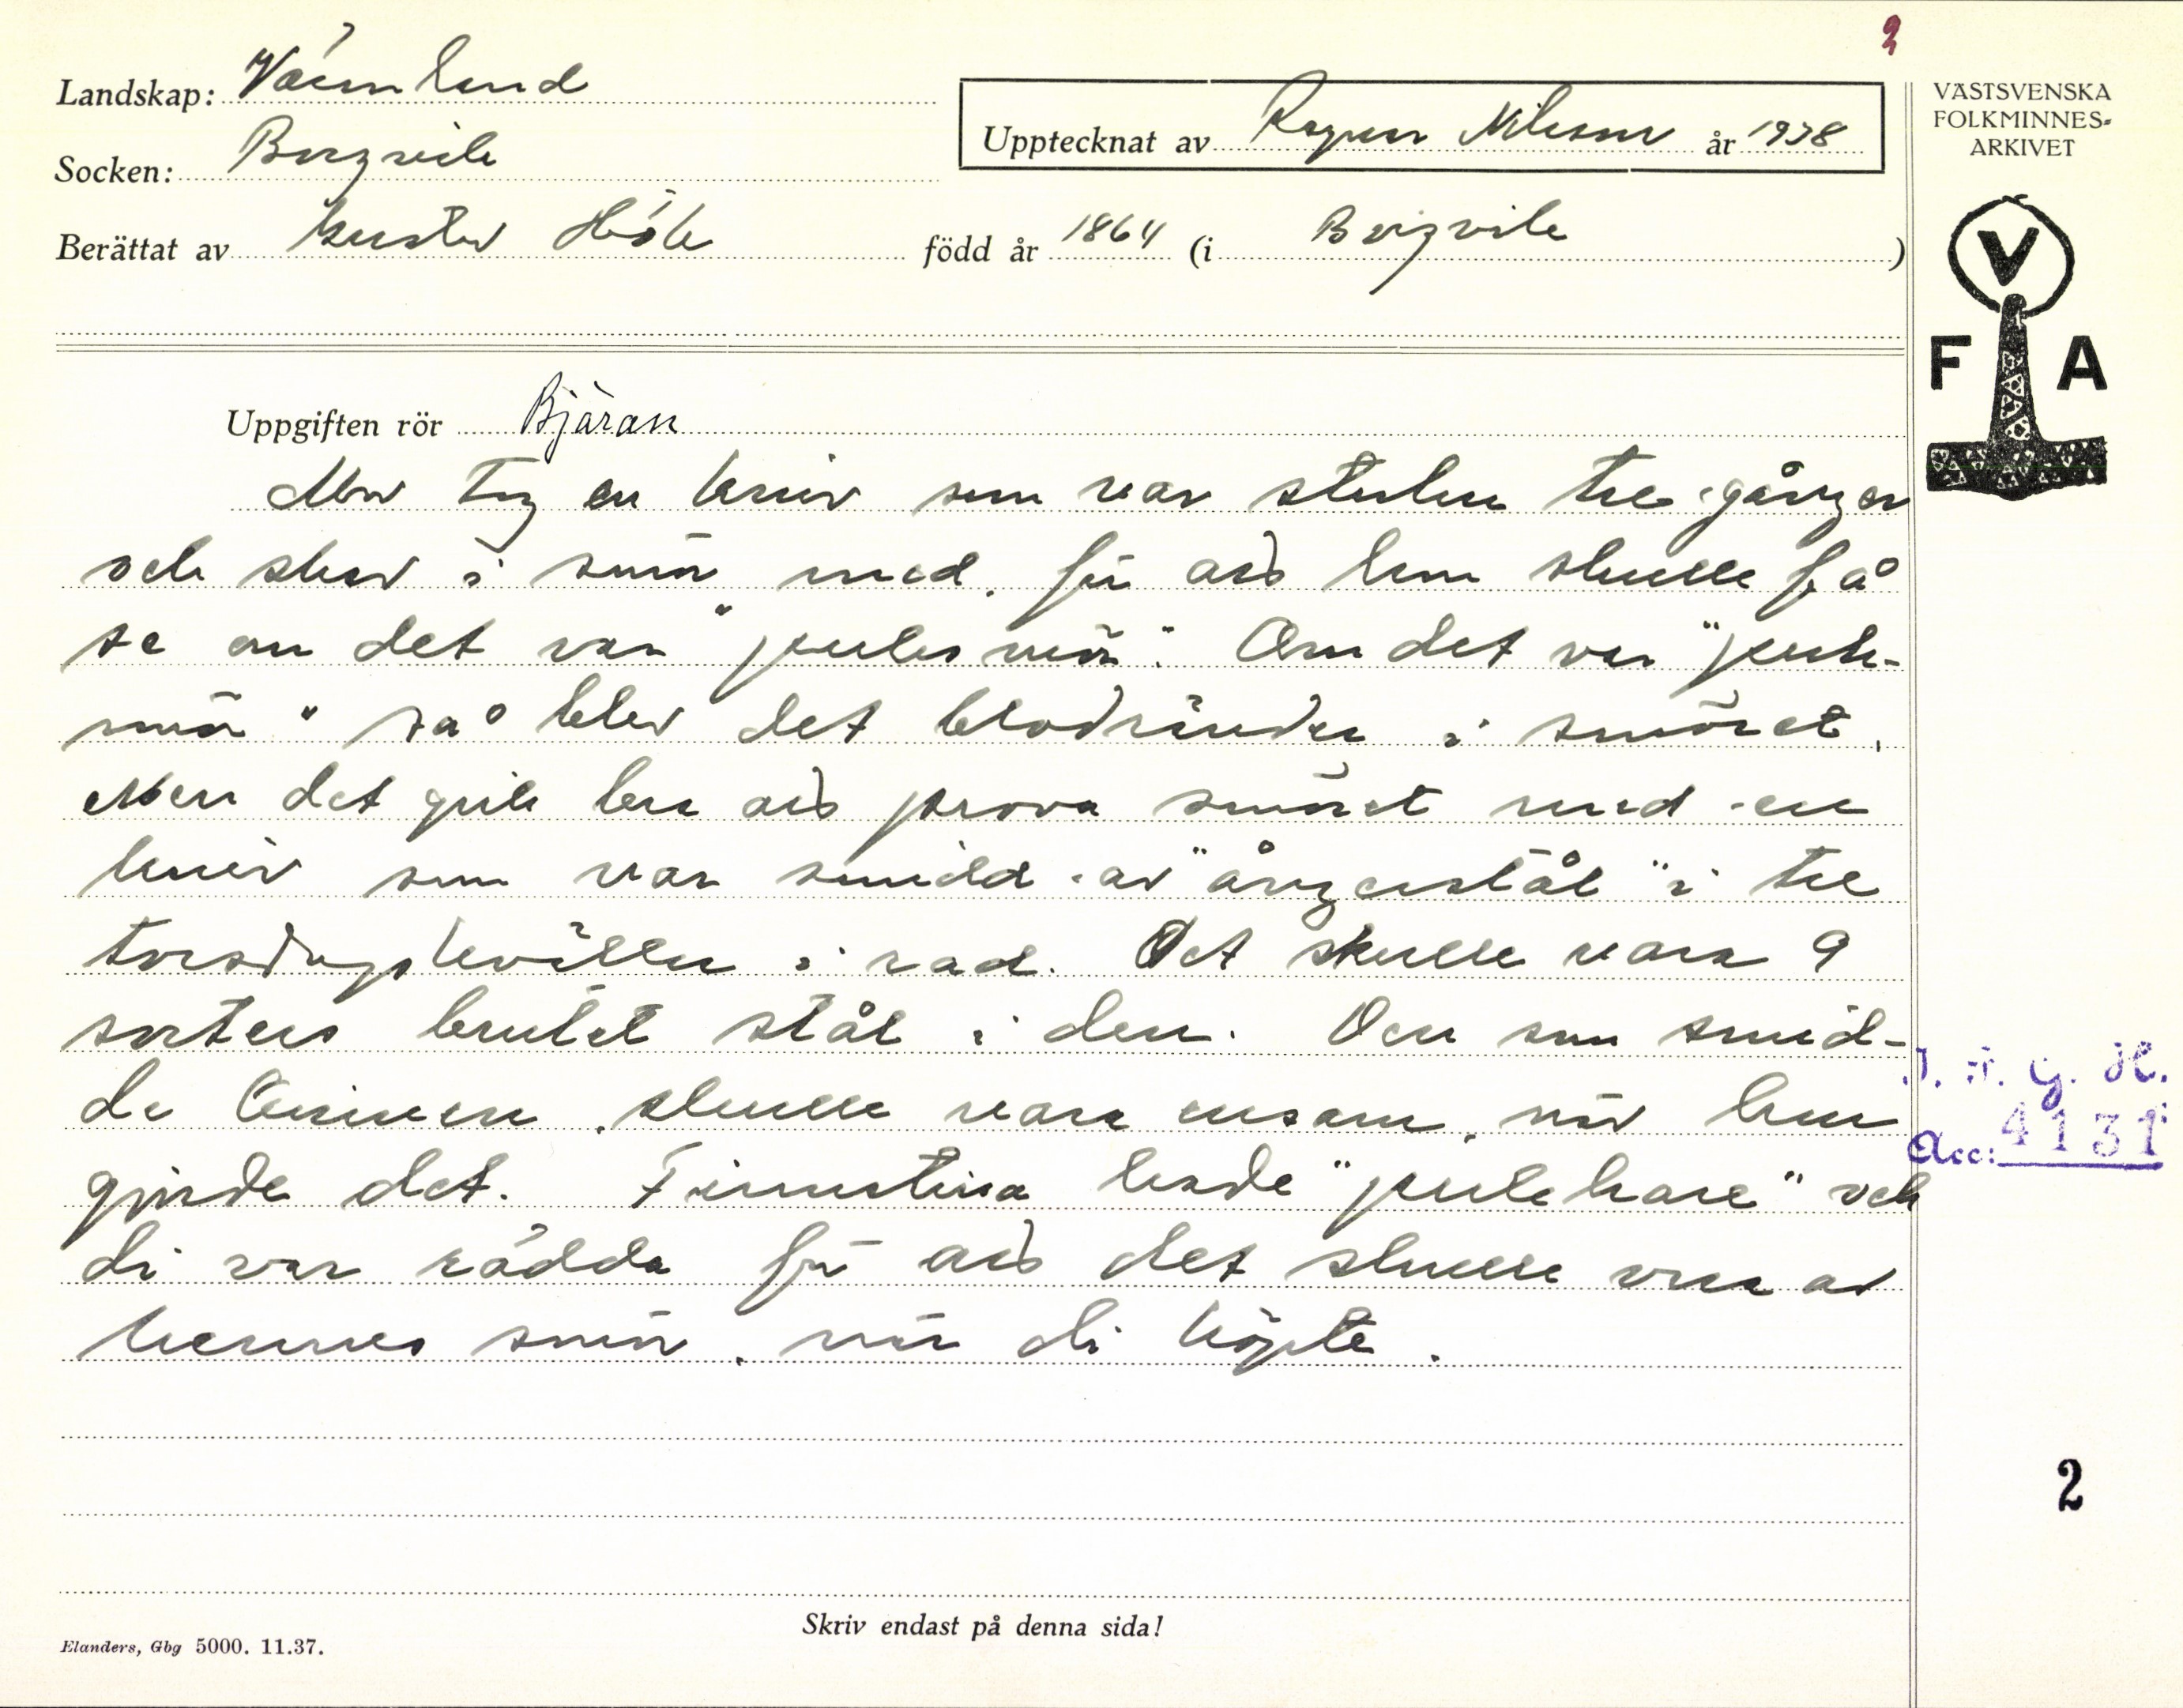 2
Landskap: Värmland
Socken: Borgvik
Berättat av Gustav Hök född år 1864 (i Borgvik)
Upptecknat av Ragnar Nilsson år 1938
VÄSTSVENSKA
FOLKMINNES-
ARKIVET
V
F A
Uppgiften rör Bjäran
Men tog en kniv som var stulen tre gånger
och skar i smör med, för att han skulle få
se om det var "pukesmör". Om det var "puke-
smör" så blev det blodränder i smöret.
Men det gick bra att prova smöret med en
kniv som var smidd av "ångerstål" i tre
torsdagskvällar i rad. Det skulle vara 9
sorters brutet stål i den. Den som smid-
de kniven, skulle vara ensam, när han
gjorde det. Finnstina hade "pukehare" och
di var rädda för att det skulle vara av
hennes smör, när di köpte.
I. F. G. H.
Acc: 4131
2
Skriv endast på denna sida!
Elanders, Gbg 5000. 11.37.